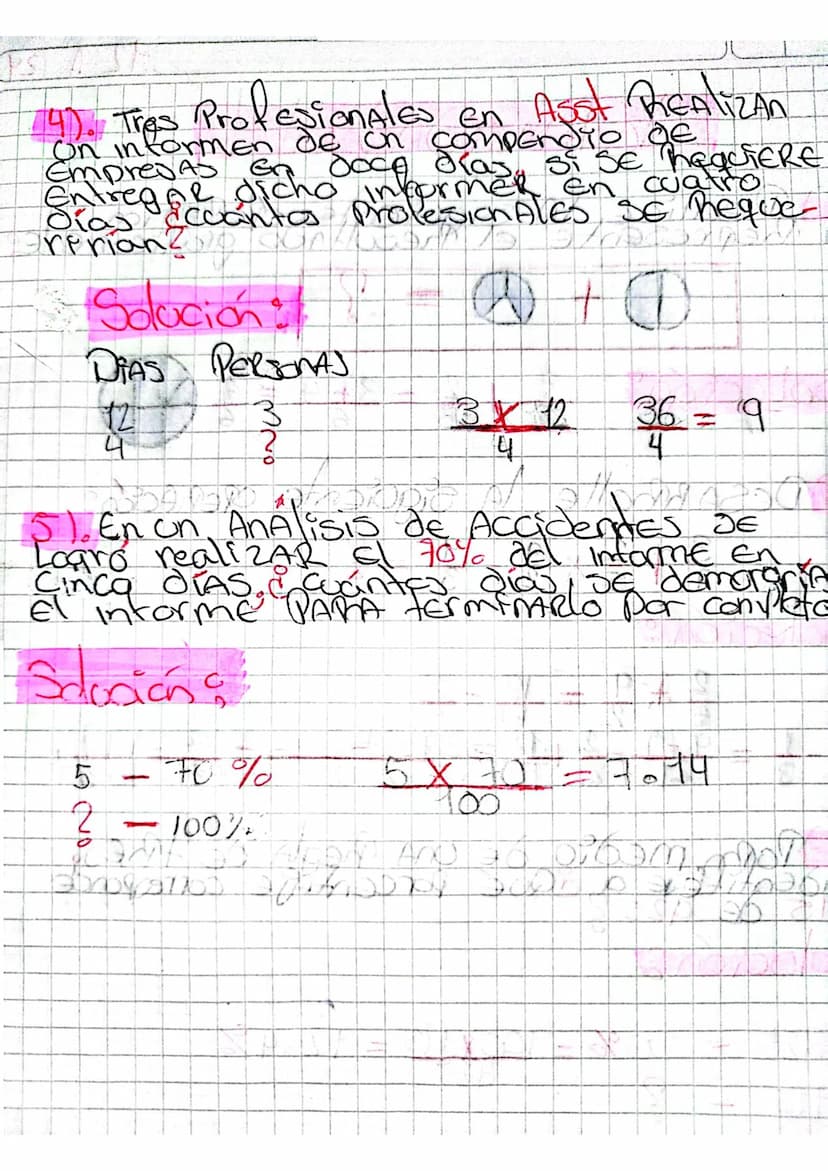 4). Tres Profesionales en Asst REALIZAN
un informen de un compendio de
Empresas en doce días, si SE REQUIERE
Entregar dicho informen en cuatro
días ¿cuántos profesionales SE Reque-
rerían?
Solución:
+
DÍAS PERSONAS
12 3 3 x 12 36 = 9
4 ? 4 4
5). En un Análisis de Accidentes SE
Logró realizar el 70% del informe en
cinco días, ¿cuántos días SE demoraría
El informe PARA terminarlo por completo
Solución:
5 - 70 % 5 x 70 = 7.14
? - 100% 100